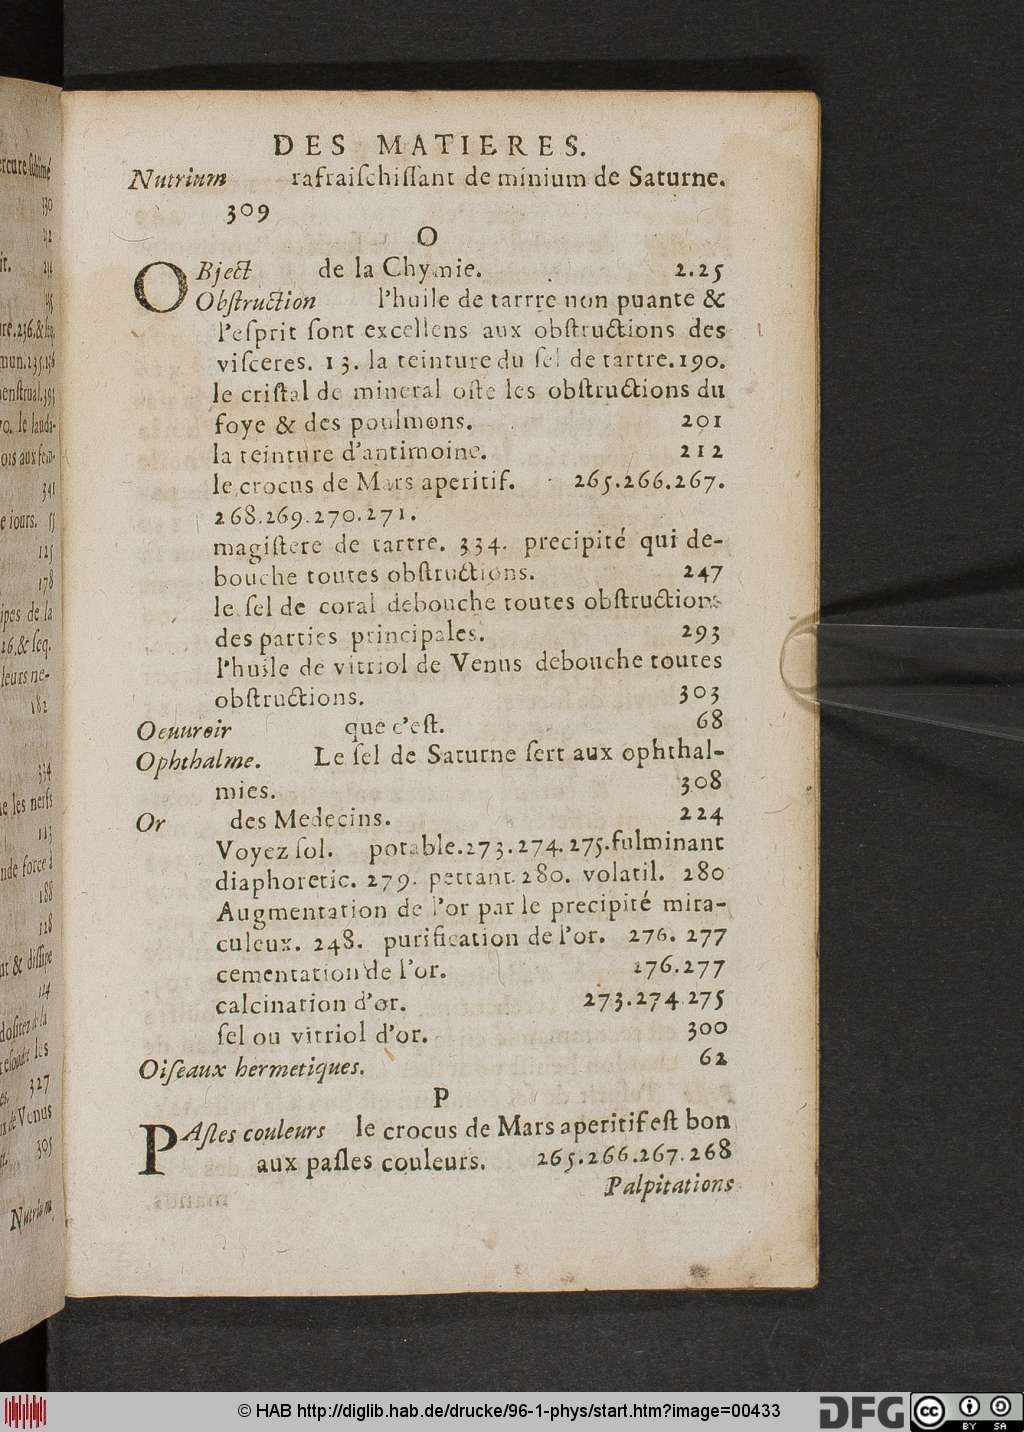 DES MATIERES.
Nutrium rafraiſchiſſant de minium de Saturne.
309
O
OBject de la Chymie. 2.25
Obſtruction l'huile de tarrre non puante &
l'eſprit ſont excellens aux obſtructions des
viſceres. 13. la teinture du ſel de tartre.190.
le criſtal de mineral oſte les obſtructions du
foye & des poulmons. 201
la teinture d'antimoine. 212
le crocus de Mars aperitif. 265.266.267.
268.269.270.271.
magiſtere de tartre. 334. precipité qui de-
bouche toutes obſtructions. 247
le ſel de coral debouche toutes obſtructions
des parties principales. 293
l'huile de vitriol de Venus debouche toutes
obſtructions. 303
Oeuuroir que c'eſt. 68
Ophthalme. Le ſel de Saturne ſert aux ophthal-
mies. 308
Or des Medecins. 224
Voyez ſol. potable.273.274.275.fulminant
diaphoretic. 279. pettant.280. volatil. 280
Augmentation de l'or par le precipité mira-
culeux. 248. purification de l'or. 276. 277
cementation de l'or. 276.277
calcination d'or. 273.274.275
ſel ou vitriol d'or. 300
Oiſeaux hermetiques. 62
P
PAſles couleurs le crocus de Mars aperitif eſt bon
aux paſles couleurs. 265.266.267.268
Palpitations
330
341
125
178
ipes de la
26.& ſeq.
leurs ne-
182
334
113
188
128
327
305
Nutrium
© HAB http://diglib.hab.de/drucke/96-1-phys/start.htm?image=00433
DFG
cc
BY SA